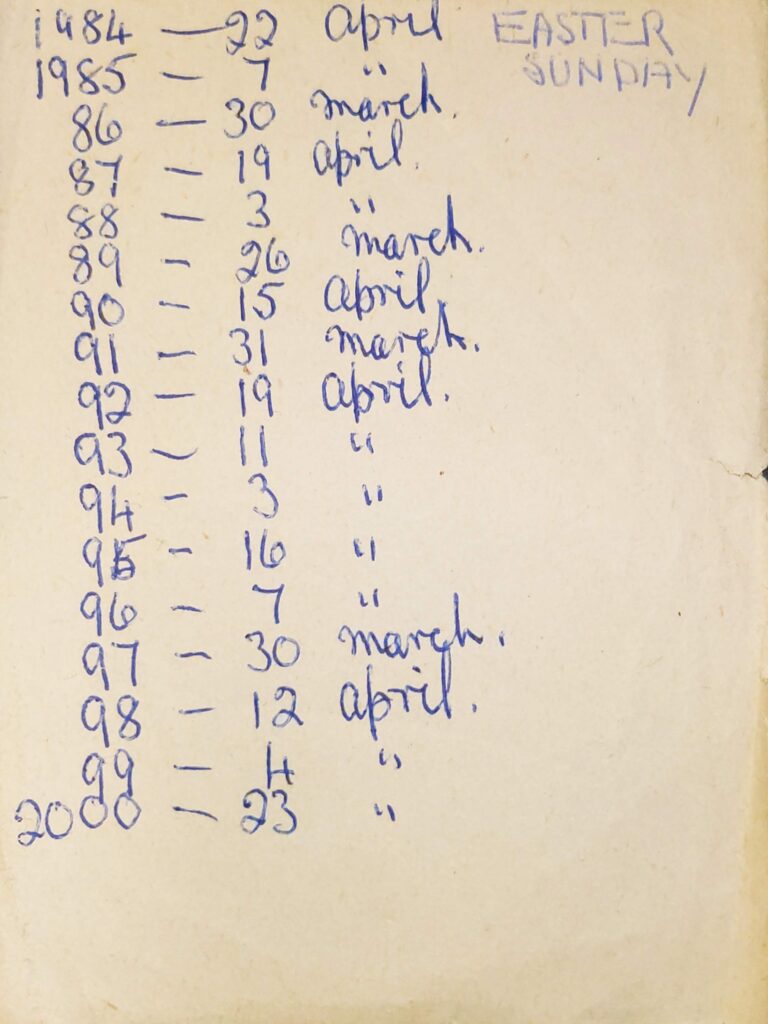 1984 — 22 april EASTER
1985 — 7 " SUNDAY
86 — 30 march.
87 — 19 april.
88 — 3 "
89 - 26 march.
90 - 15 april.
91 - 31 march.
92 - 19 april.
93 - 11 "
94 - 3 "
95 - 16 "
96 - 7 "
97 - 30 march.
98 - 12 april.
99 - 4 "
2000 - 23 "